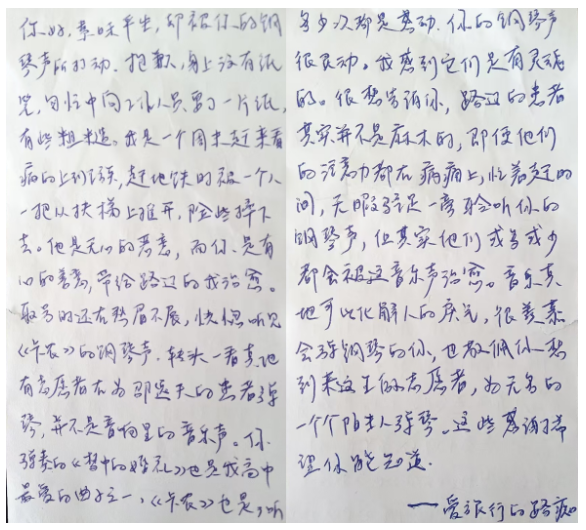 你好，素昧平生，却被你的钢
琴声所打动。抱歉，身上没有纸
笔，匆忙中向工作人员要了一片纸，
有些粗糙。我是一个周末赶来看
病的上班族，赶地铁时被一个人
一把从扶梯上推开，险些摔下
去。他是无心的恶意，而你是有
心的善意，带给路过的我治愈。
取号时还在愁眉不展，恍惚听见
《卡农》的钢琴声，转头一看真的
有志愿者在为邵逸夫的患者弹
琴，并不是音响里的音乐声。你
弹奏的《梦中的婚礼》也是我高中
最爱的曲子之一，《卡农》也是，听
多少次都是感动。你的钢琴声
很灵动。我感到它们是有灵魂
的。很想告诉你，路过的患者
其实并不是麻木的，即使他们
的注意力都在病痛上，忙着赶时
间，无暇驻足一旁聆听你的
钢琴声，但其实他们或多或少
都会被这音乐声治愈。音乐真
地可以化解人的戾气，很羡慕
会弹钢琴的你，也敬佩你想
到来这里做志愿者，为无名的
一个个陌生人弹琴。这些感谢希
望你能知道。
——爱旅行的路痴